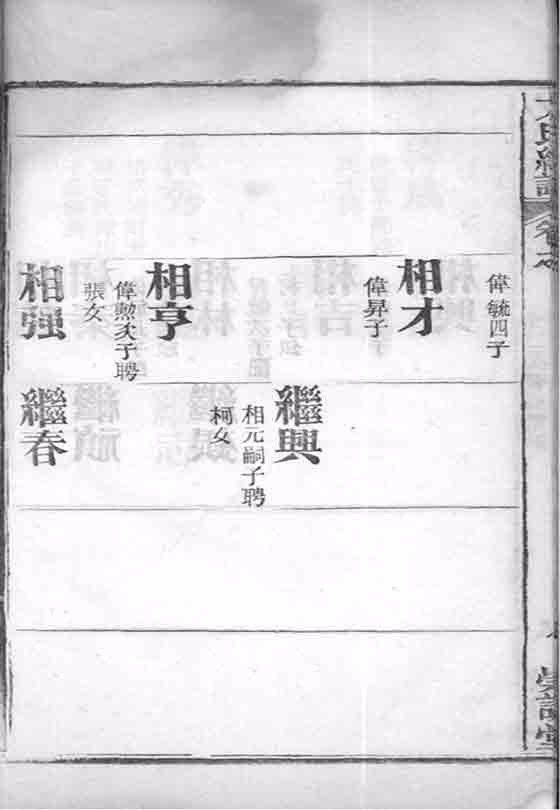 氏總
偉毓四子
相才
偉昇子
相亨
偉勲次子聘
張女
相强
繼興
相元嗣子聘
柯女
繼春